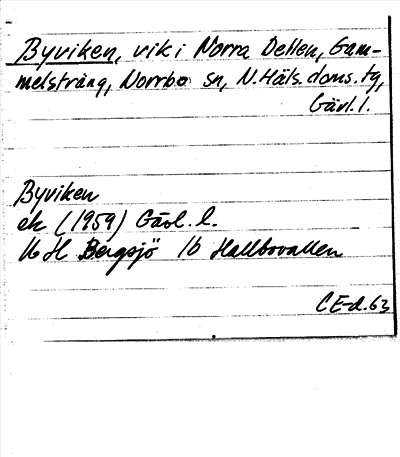 Byviken, vik i Norra Dellen, Gam-
melsträng, Norrbo sn, N. Häls. doms. tg,
Gävl. l.
Byviken
ek (1959) Gävl. l.
16 H Bergsjö 1b Hallbovallen
CE-d. 63